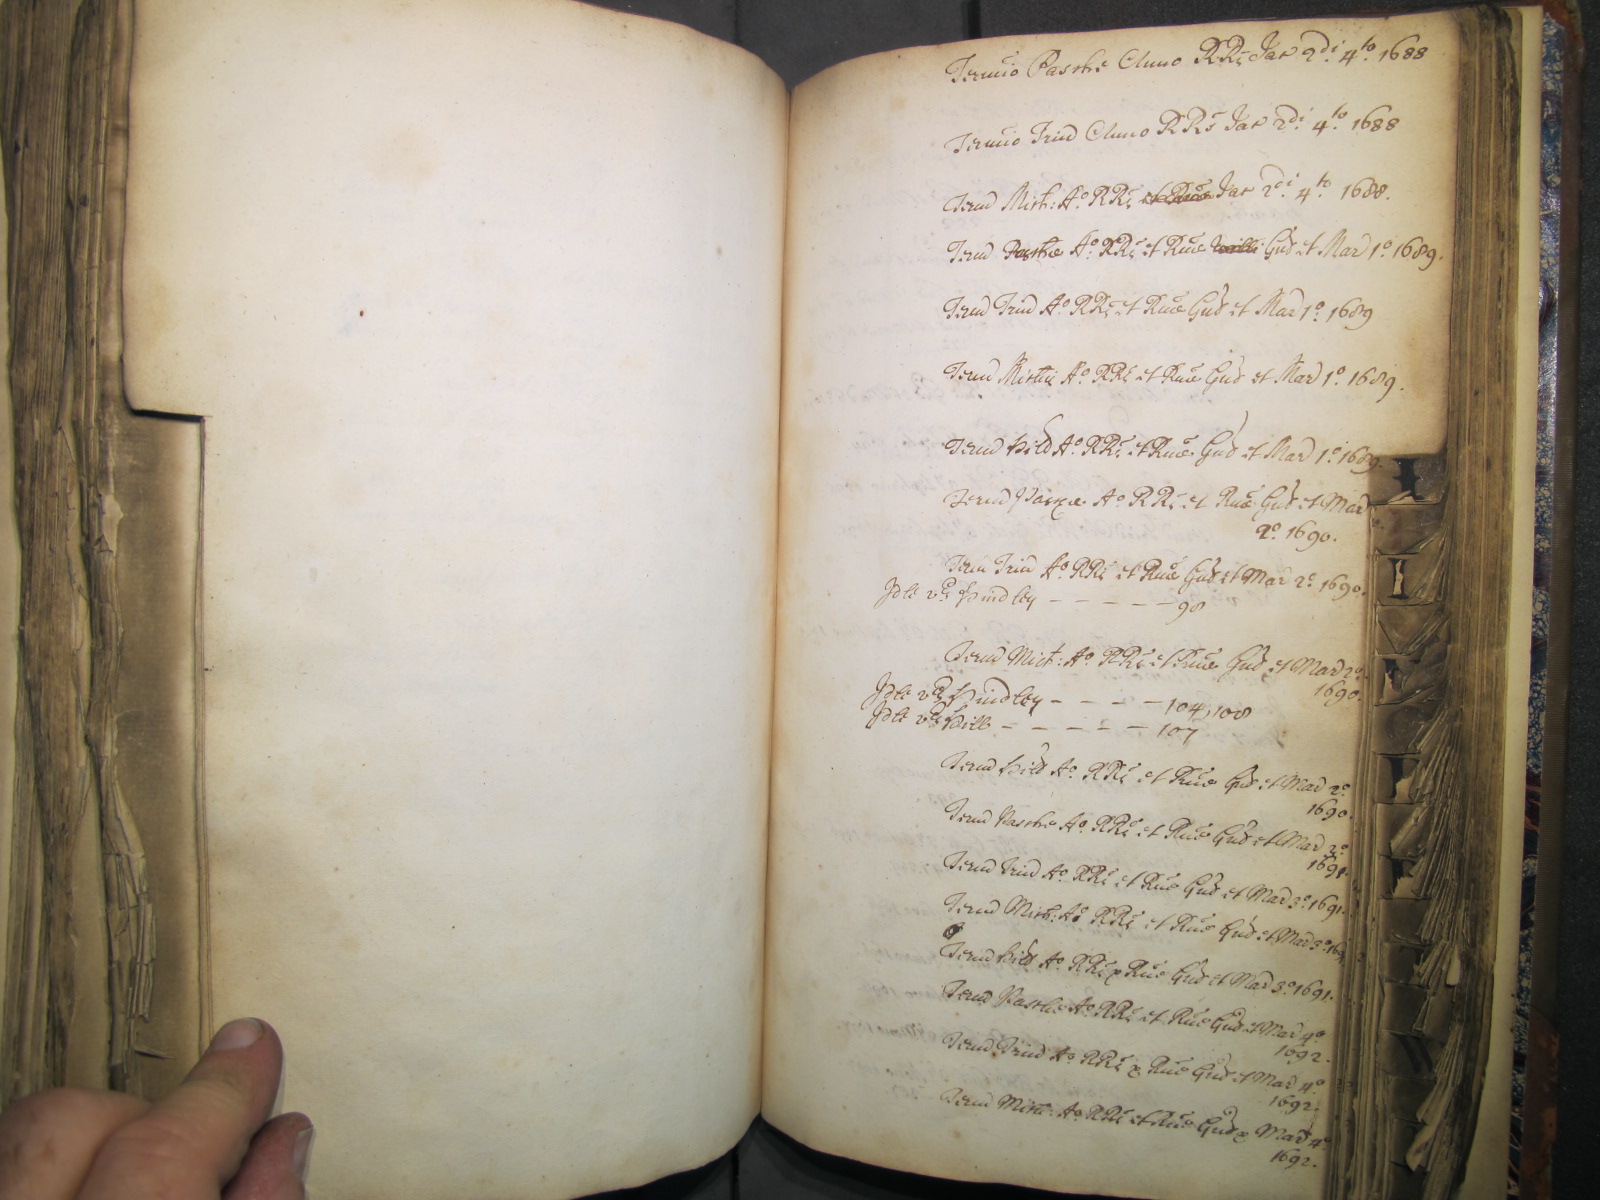 Termio Pasche Anno RRs Jac 2di 4to 1688
Termio Trin Anno RRs Jac 2di 4to 1688
Term Mich: Ao RRs et Rne Jac 2di 4to 1688.
Term Pasche Ao RRs et Rne Willi Gul et Mar 1o 1689.
Term Trin Ao RRs et Rne Gul et Mar 1o 1689
Term Michis Ao RRs et Rne Gul et Mar 1o 1689.
Term Hill Ao RRs et Rne Gul et Mar 1o 1689.
Term Pasche Ao RRs et Rne Gul et Mar
2o 1690.
Term Trin Ao RRs et Rne Gul et Mar 2o 1690.
Hindley - - - - - 98
Term Mich: Ao RRs et Rne Gul et Mar 2o
1690.
Hindley - - - - 104, 108
Hill - - - - - 107
Term Hill Ao RRs et Rne Gul et Mar 2o
1690.
Term Pasche Ao RRs et Rne Gul et Mar 3o
1691.
Term Trin Ao RRs et Rne Gul et Mar 3o 1691.
Term Mich: Ao RRs et Rne Gul et Mar 3o 169
Term Hill Ao RRs & Rne Gul et Mar 3o 1691.
Term Pasche Ao RRs et Rne Gul et Mar 4o
1692.
Term Trin Ao RRs & Rne Gul et Mar 4o
1692.
Term Mich: Ao RRs et Rne Gul & Mar 4o
1692.